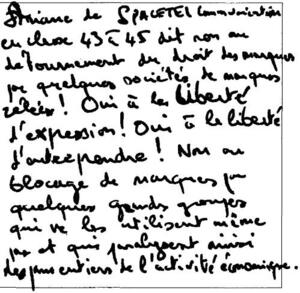 Ariane de SPACETEL Communication
en classe 43 à 45 dit non au
détournement du droit des marques
par quelques sociétés de marques
zélées ! Oui à la liberté
d'expression ! Oui à la liberté
d'entreprendre ! Non au
blocage de marques par
quelques grands groupes
qui ne les utilisent même
pas et qui paralysent ainsi
des pans entiers de l'activité économique.